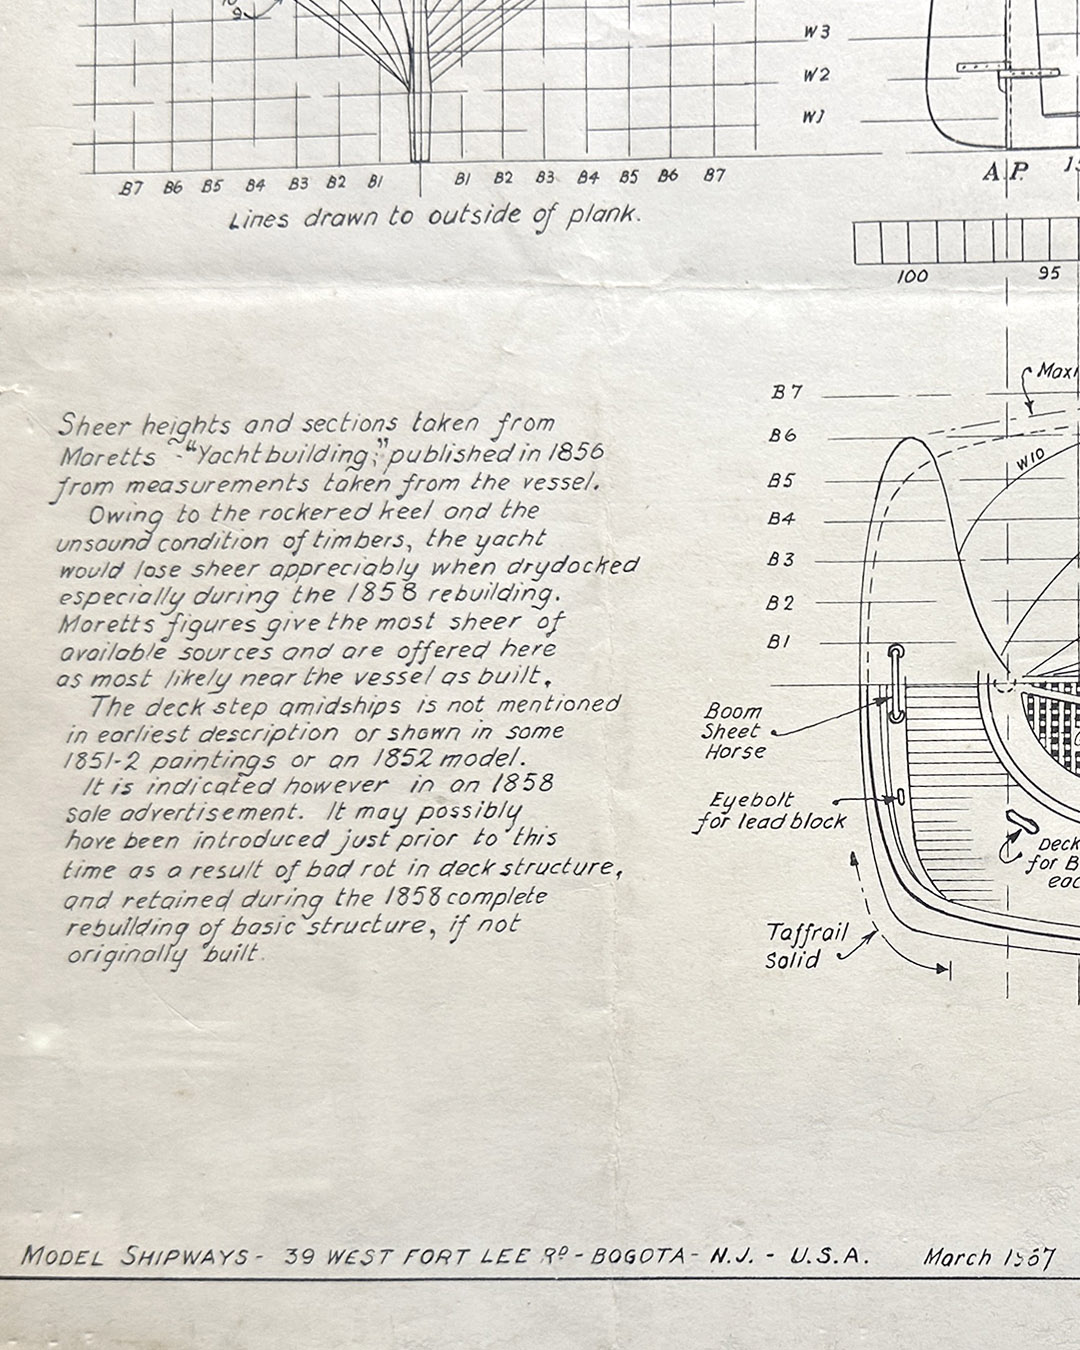 9
W3
W2
W1
B7 B6 B5 B4 B3 B2 B1 B1 B2 B3 B4 B5 B6 B7
Lines drawn to outside of plank.
A.P.
100 95
Sheer heights and sections taken from
Maretts - "Yacht building," published in 1856
from measurements taken from the vessel.
Owing to the rockered keel and the
unsound condition of timbers, the yacht
would lose sheer appreciably when drydocked
especially during the 1858 rebuilding.
Maretts figures give the most sheer of
available sources and are offered here
as most likely near the vessel as built.
The deck step amidships is not mentioned
in earliest description or shown in some
1851-2 paintings or an 1852 model.
It is indicated however in an 1858
sale advertisement. It may possibly
have been introduced just prior to this
time as a result of bad rot in deck structure,
and retained during the 1858 complete
rebuilding of basic structure, if not
originally built.
B7
B6
B5
B4
B3
B2
B1
W10
Boom
Sheet
Horse
Eyebolt
for lead block
Deck
for B
Taffrail
Solid
MODEL SHIPWAYS - 39 WEST FORT LEE RD - BOGOTA - N.J. - U.S.A. March